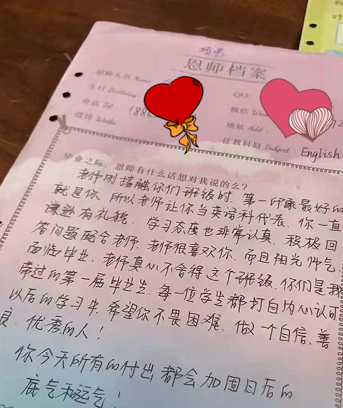 恩师档案
恩师大名 Name:
生日 Birthday:
QQ:
电话 Tel: 188
微信
微博 Weibo:
地址 Add:
任教科目 Subject: English
毕业之际，恩师有什么话想对我说的么？
老师刚接触你们班级时，第一印象最好的
就是你，所以老师让你当英语科代表，你一直
谦逊有礼貌，学习态度也非常认真，积极回
答问题配合老师，老师很喜欢你，而且阳光帅气，
面临毕业，老师真心不舍得这个班级，你们是我
带过的第一届毕业生，每一位学生都打自内心认可
以后的学习中，希望你不畏困难，做一个自信，善
良，优秀的人！
你今天所有的付出都会加固日后的
底气和运气！